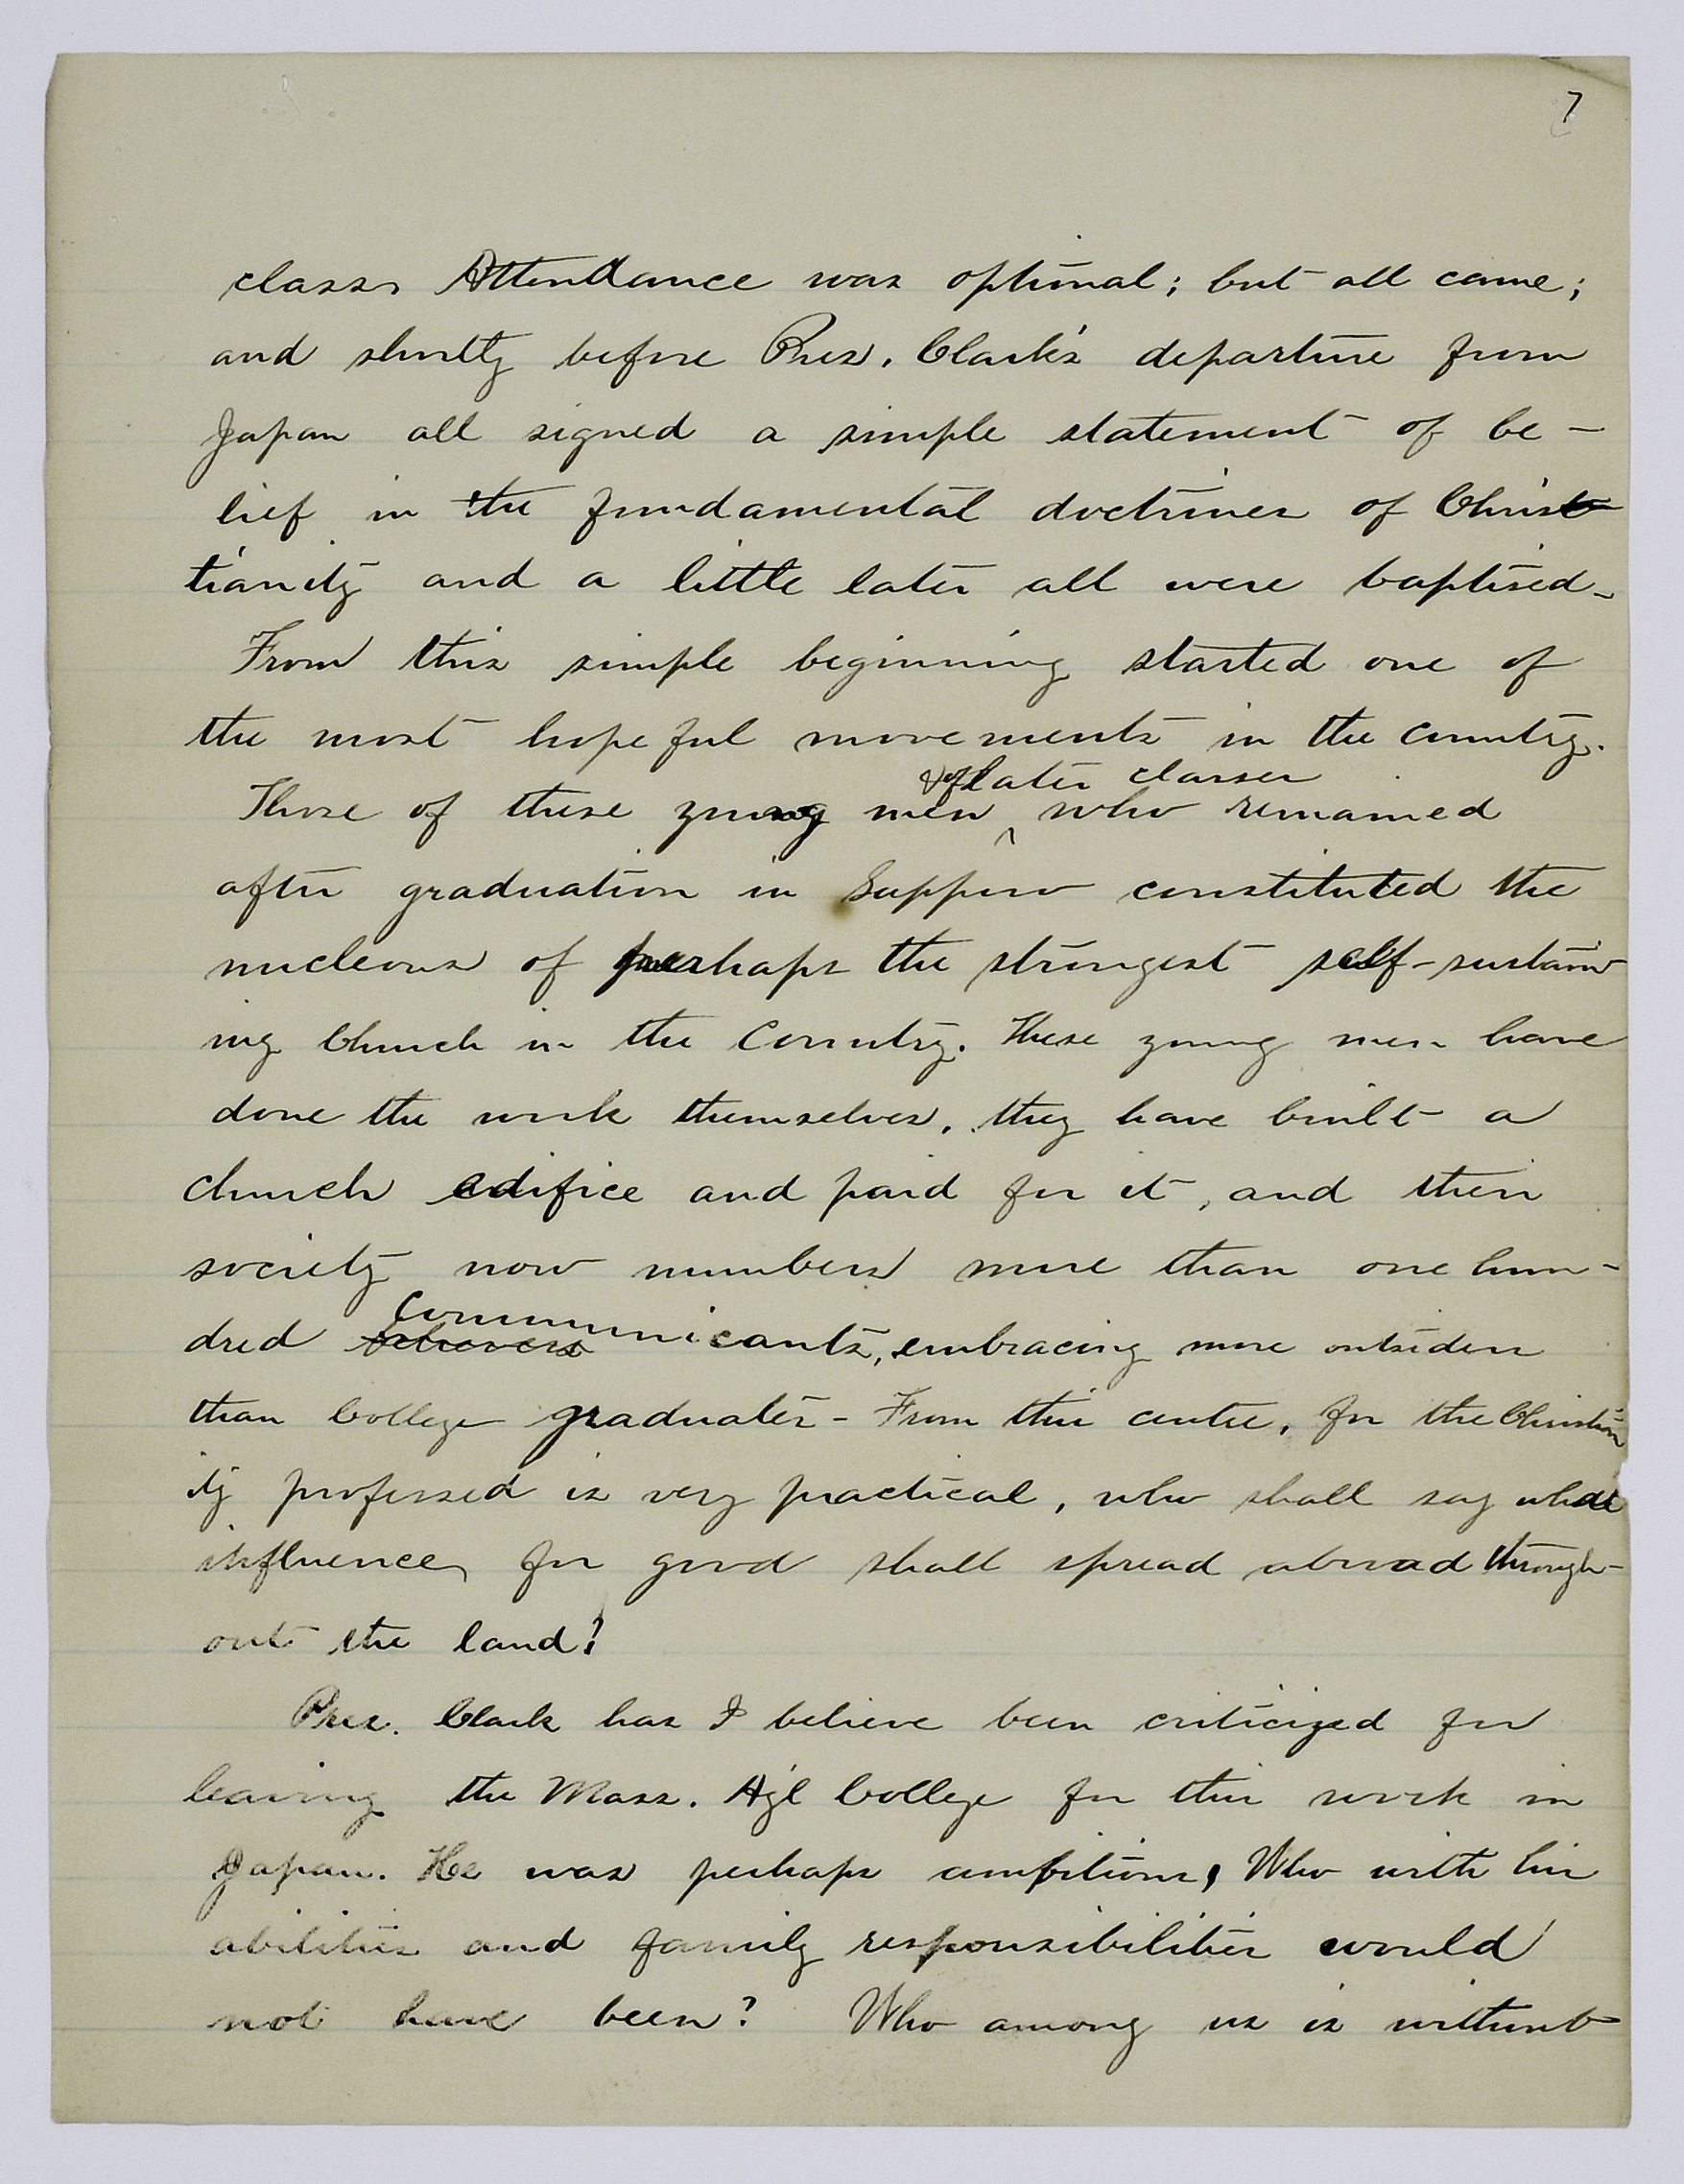 7
class. Attendance was optional; but all came;
and shortly before Pres. Clark's departure from
Japan all signed a simple statement of be-
lief in the fundamental doctrines of Chris
tianity and a little later all were baptised.
From this simple beginning started one of
the most hopeful movements in the country.
& of later classes
Those of these young men ^ who remained
after graduation in Sapporo constituted the
nucleous of perhaps the strongest self-sustain
ing Church in the Country. These young men have
done the work themselves, they have built a
church edifice and paid for it, and their
society now numbers more than one hun-
communicants,
dred believers embracing more outsiders
than College graduates - From this centre, for the Christian
ity professed is very practical, who shall say what
influence, for good shall spread abroad through-
out the land?
Pres. Clark has I believe been criticized for
leaving the Mass. Ag'l College for this work in
Japan. He was perhaps ambitious, Who with his
abilities and family responsibilities would
not have been? Who among us is without